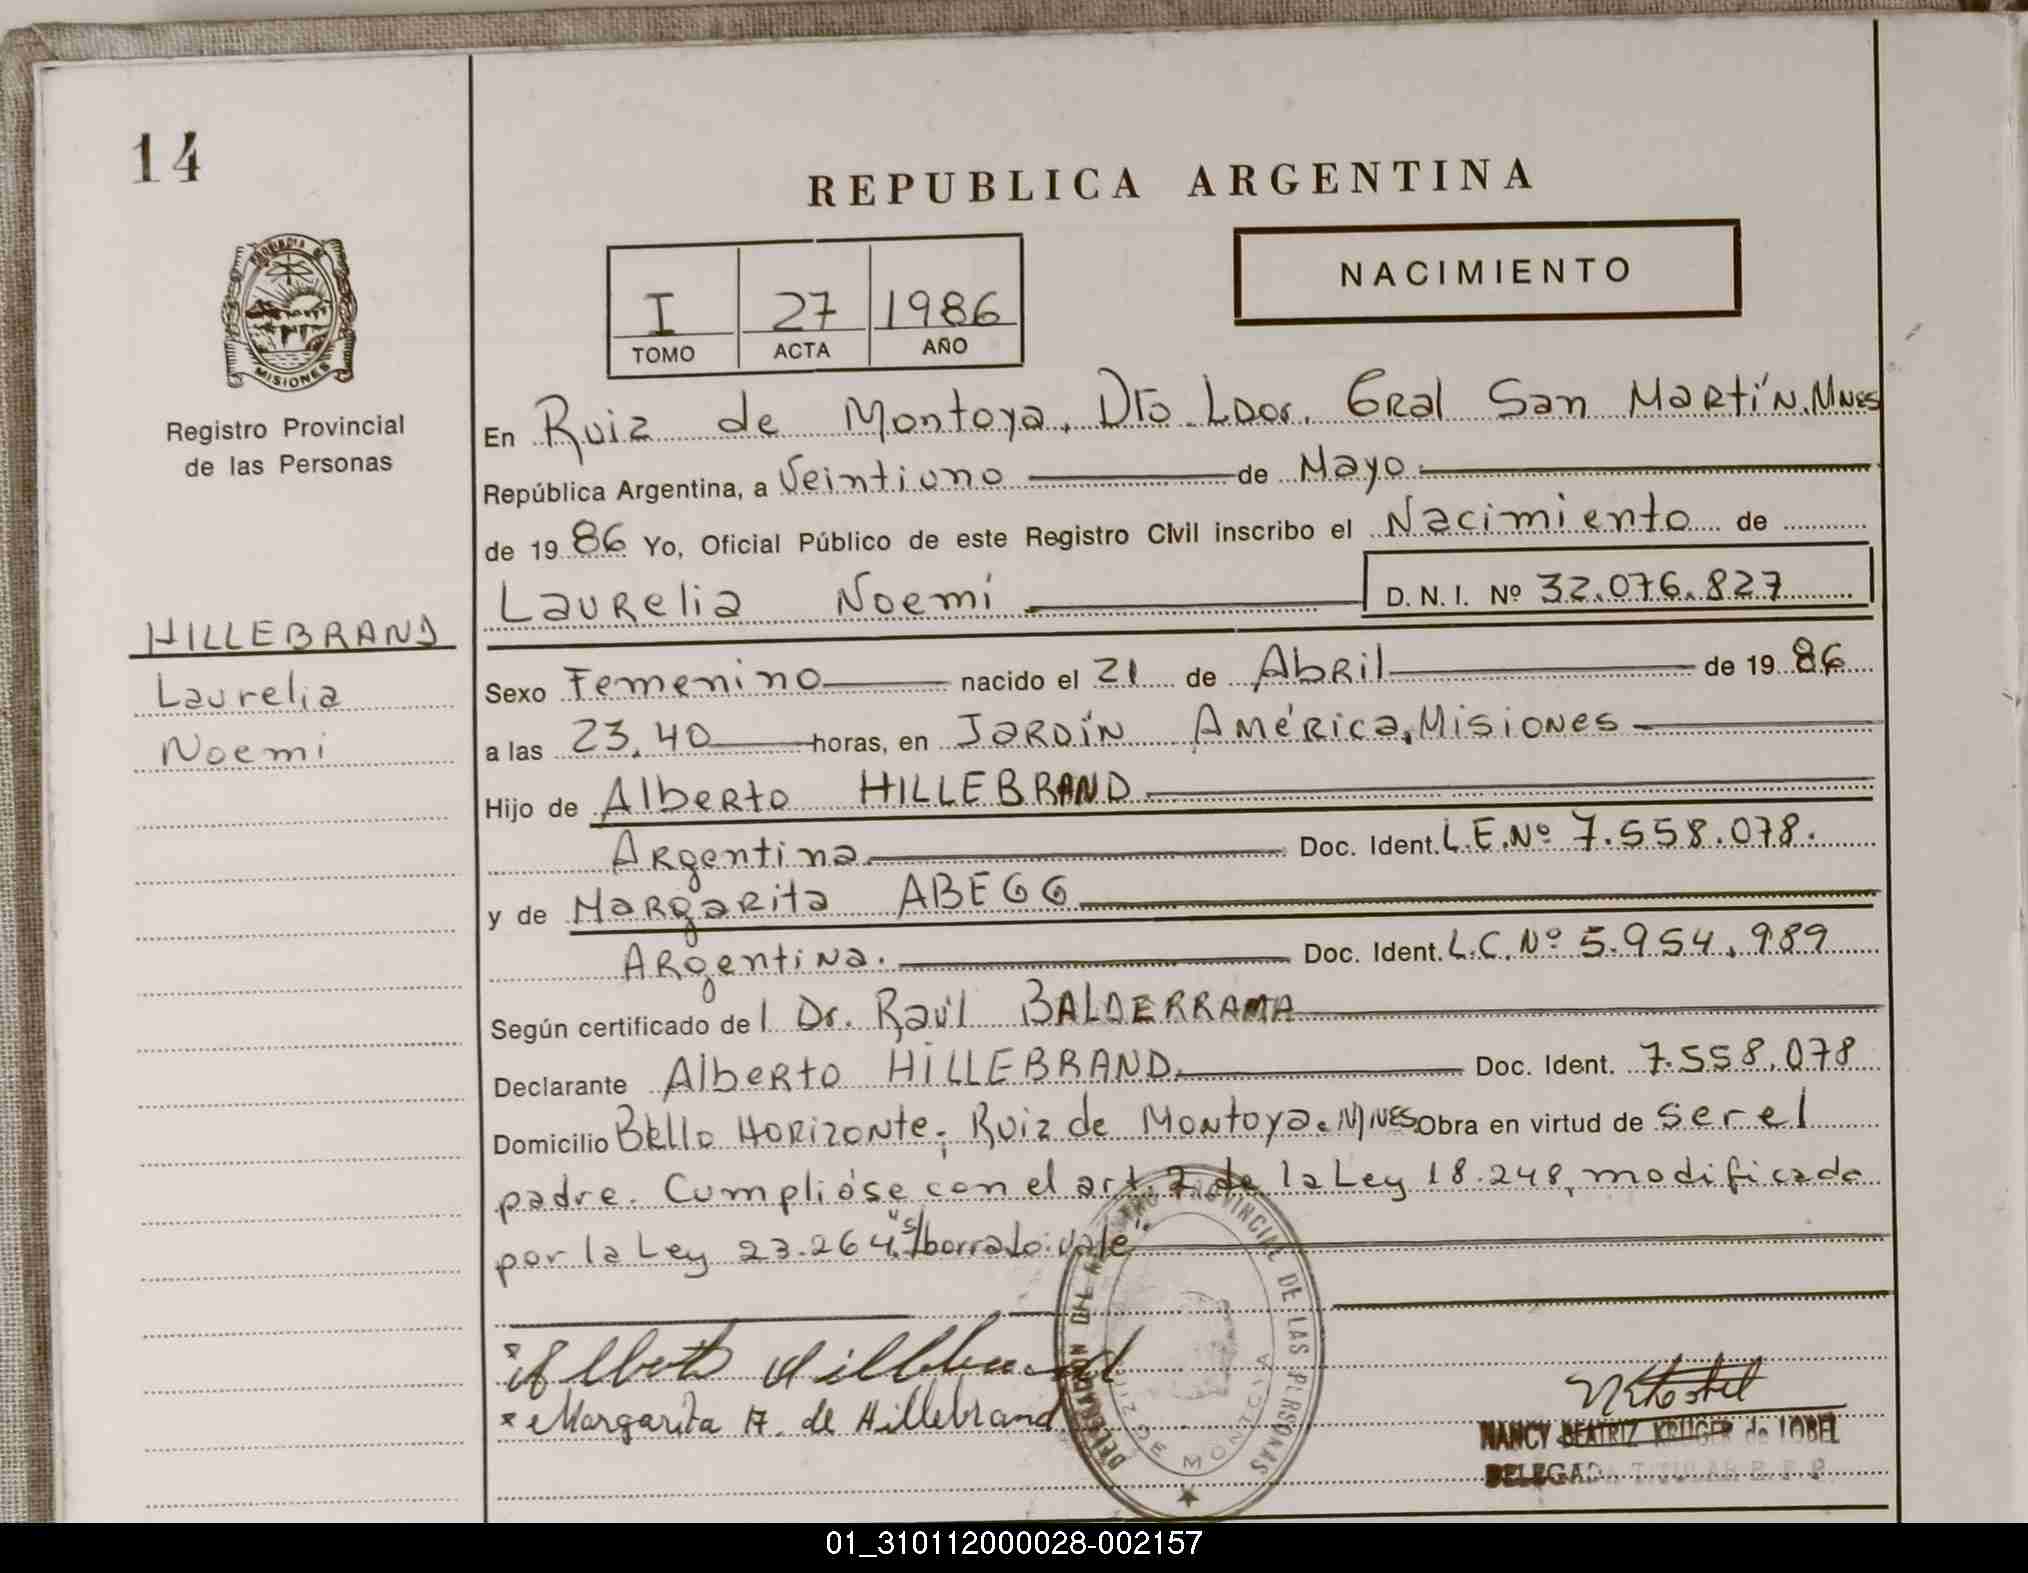 14
REPUBLICA ARGENTINA
PROVINCIA DE
MISIONES
Registro Provincial
de las Personas
NACIMIENTO
I 27 1986
TOMO ACTA AÑO
En Ruiz de Montoya, Dto. Ldor. Gral San Martín, Mnes
República Argentina, a Veintiuno de Mayo
de 1986 Yo, Oficial Público de este Registro Civil inscribo el Nacimiento de
Laurelia Noemi D. N. I. Nº 32.076.827
HILLEBRAND
Laurelia
Noemi
Sexo Femenino nacido el 21 de Abril de 1986
a las 23.40 horas, en Jardín América, Misiones
Hijo de Alberto HILLEBRAND
Argentina Doc. Ident. L.E.Nº 7.558.078.
y de Margarita ABEGG
Argentina. Doc. Ident. L.C.Nº 5.954.989
Según certificado del Dr. Raúl BALDERRAMA
Declarante Alberto HILLEBRAND. Doc. Ident. 7.558.078
Domicilio Bello Horizonte, Ruiz de Montoya. Mnes Obra en virtud de ser el
padre. Cumplióse con el art. 2 de la Ley 18.248, modificada
por la Ley 23.264. "s/borrado: vale".
Alberto Hillebrand
Margarita A. de Hillebrand
DELEGACION DEL REGISTRO PROVINCIAL DE LAS PERSONAS
RUIZ DE MONTOYA
NANCY BEATRIZ KRUGER de LOBEL
DELEGADA TITULAR R. P. P.
01_310112000028-002157